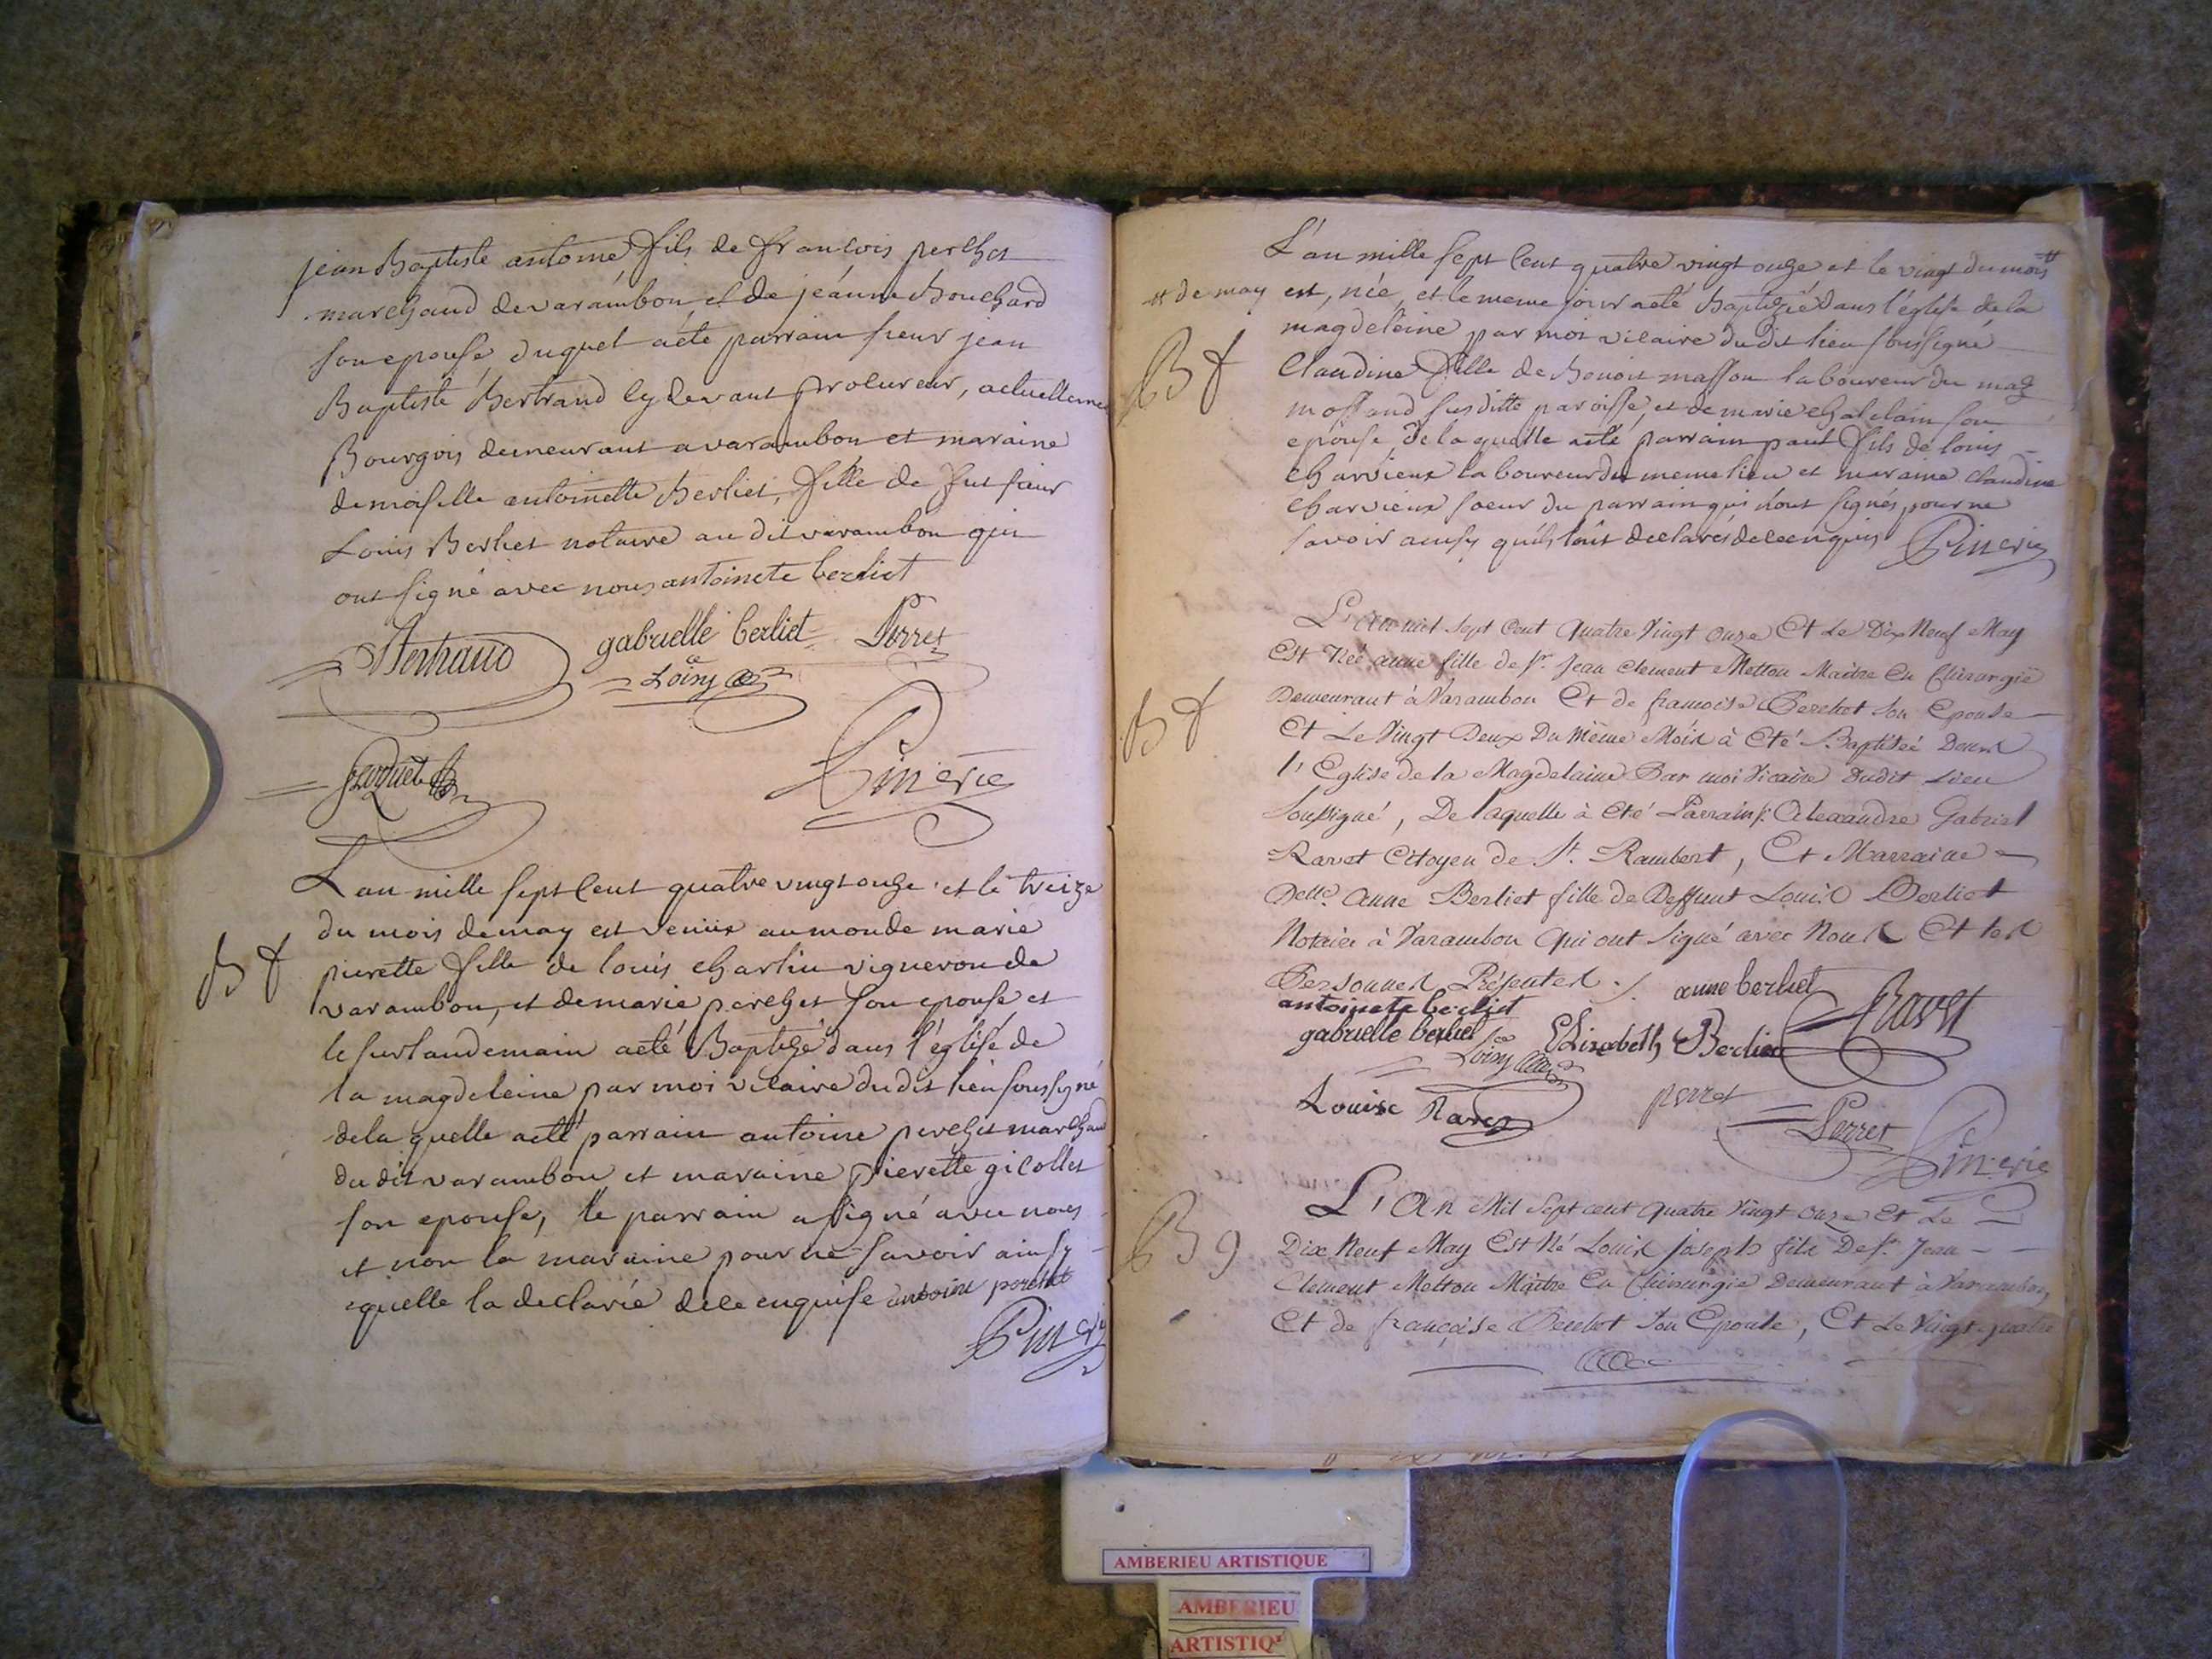 jean Baptiste antoine fils de francois perchet
marchand de varambon, et de jeanne Bouchard
son epouse, duquel a été parrain sieur jean
Baptiste Bertrand cy devant procureur, actuellement
Bourgois demeurant a varambon et maraine
demoiselle antoinette Berliet, fille de fut sieur
Louis Berliet notaire au dit varambon qui
ont signé avec nous antoinete berliet
gabrielle berliet Perret
Loisy
Pinerie
L'an mille sept cent quatre vingt onze et le treize
du mois de may est venue au monde marie
B f pierette fille de louis charlin vigneron de
varambon, et de marie perchet son epouse et
le surlandemain a eté Baptizé dans l'église de
la magdeleine par moi vicaire du dit lieu soussigné
de la quelle a eté parrain antoine perchet marchand
du dit varambon et maraine pierette gicollet
son epouse, le parrain a signé avec nous
et non la maraine pour ne savoir ainsy
quelle la declarée de ce enquise antoine perchet
Pinerie
L'an mille sept cent quatre vingt onze et le vingt du mois #
# de may est, née, et le meme jour a eté Baptizée dans l'église de la
magdeleine par moi vicaire du dit lieu soussigné
B f Claudine fille de Benoit masson laboureur du
susditte paroisse, et de marie chatelain son
epouse, de la quelle a eté parrain paul fils de louis
charvieux laboureur du meme lieu et maraine claudine
charvieux soeur du parrain qui n'ont signés pour ne
savoir ainsy qu'ils l'ont declarés de ce enquis Pinerie
L'an mil sept Cent Quatre Vingt Onze Et Le Dix Neuf May
Est Née anne fille de Sr. Jean Clement Metton Maitre En Chirurgie
B f Demeurant à Varambon Et de francoise Perchet Son Epouse
Et Le Vingt Deux Du Même Mois à Eté Baptisée Dans
l'Eglise de la Magdelaine Par moi Vicaire Dudit Lieu
Soussigné, De laquelle à Eté Parrain Sr. Alexandre Gabriel
Ravet Citoyen de St. Rambert, Et Marraine
Delle. Anne Berliet fille de Deffunt Louis Berliet
Notaire à Varambon Qui ont Signé avec Nous Et les
Personnes Présentes ./. anne berliet
antoinete berliet Ravet
gabrielle berliet Elizabeth Berliet
Loisy
Louise Ravet perret
Perret
Pinerie
L'An Mil Sept cent Quatre Vingt Onze Et Le
B g Dix Neuf May Est Né Louis Joseph fils De Sr. Jean
Clement Metton Maitre En Chirurgie Demeurant à Varambon
Et de françoise Perchet Son Epouse, Et Le Vingt quatre
AMBERIEU ARTISTIQUE
AMBERIEU
ARTISTIQ